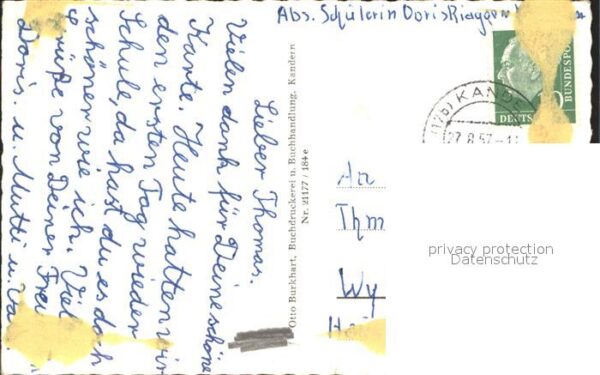 Abs. Schülerin Doris
Lieber Thomas.
Vielen dank für Deine schöne
Karte. Heute hatten wir
den ersten Tag wieder
Schule, da hast du es doch
schöner wie ich. Viel
grüße von Deiner Freu
Doris. u. Mutti u. Va
Otto Burkhart, Buchdruckerei u. Buchhandlung, Kandern
Nr. 21177 / 184 e
DEUTS
BUNDESPOS
(17b) KANDE
27.8.57-1
An
Thm
Wy
privacy protection
Datenschutz